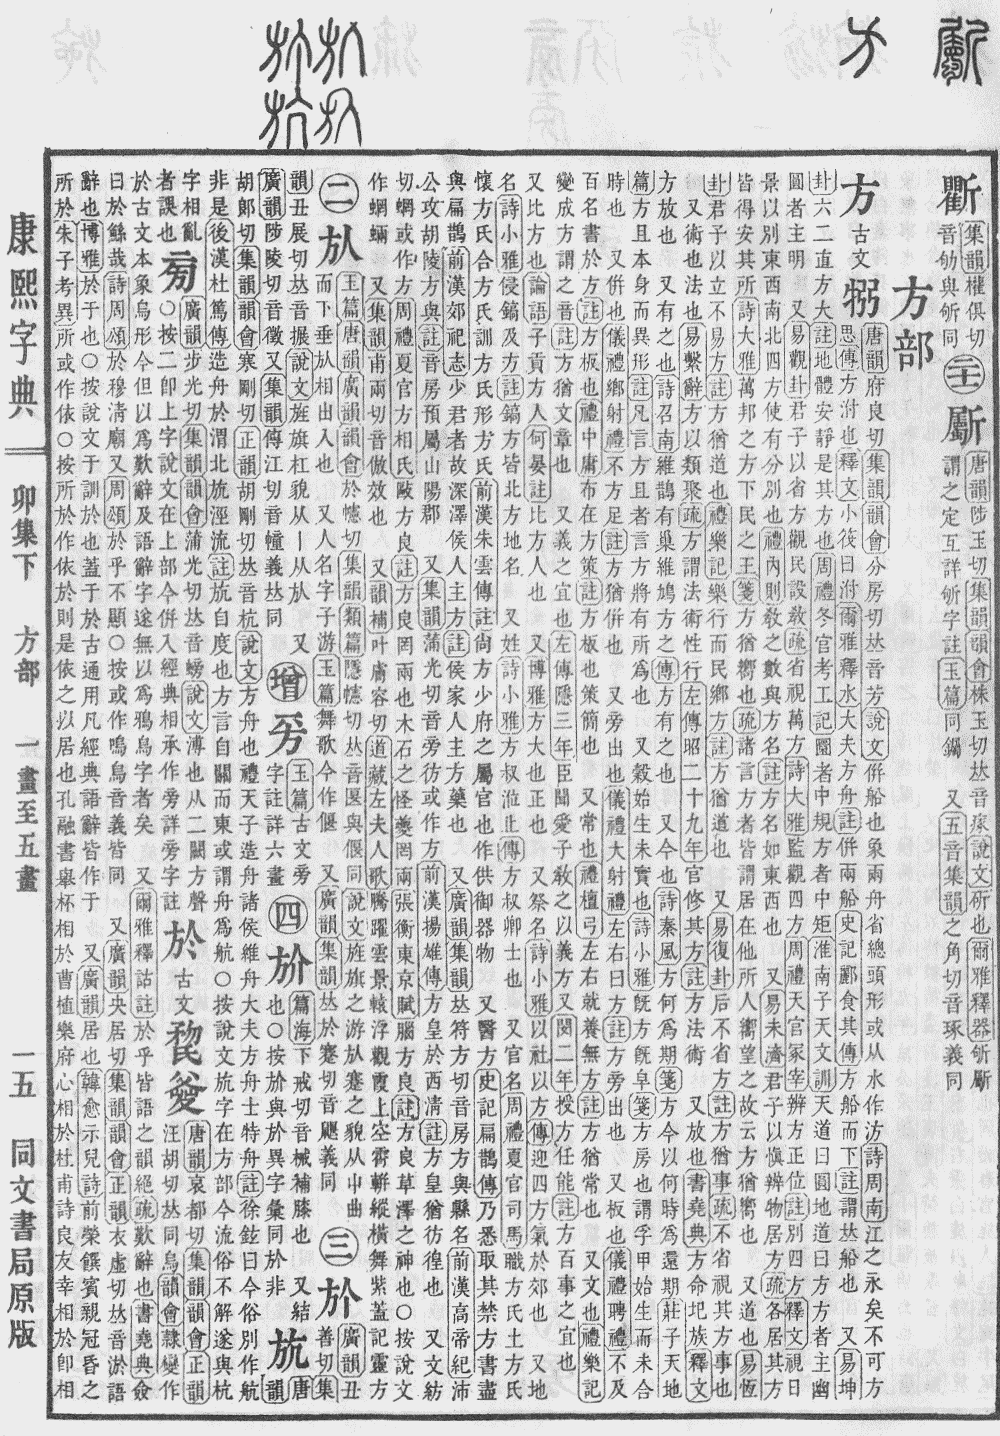 集韻權俱切音劬與斪同
唐韻陟玉切集韻韻會株玉切𠀤音瘃說文斫也爾雅釋器斪斸
謂之定互詳斪字註玉篇同钃 又五音集韻之角切音琢義同
方部
方 古文
唐韻府良切集韻韻會分房切𠀤音芳說文倂船也象兩舟省總頭形或从水作汸詩周南江之永矣不可方
思傳方泭也釋文小筏曰泭爾雅釋水大夫方舟註倂兩船史記酈食其傳方船而下註謂𠀤船也 又易坤
卦六二直方大註地體安靜是其方也周禮冬官考工記圜者中規方者中矩淮南子天文訓天道曰圓地道曰方方者主幽
圓者主明 又易觀卦君子以省方觀民設敎疏省視萬方詩大雅監觀四方周禮天官冢宰辨方正位註別四方釋文視日
景以別東西南北四方使有分別也禮內則敎之數與方名註方名如東西也 又易未濟君子以愼辨物居方疏各居其方
皆得安其所詩大雅萬邦之方下民之王箋方猶嚮也疏諸言方者皆謂居在他所人嚮望之故云方猶嚮也 又道也易恆
卦君子以立不易方註方猶道也禮樂記樂行而民鄉方註方猶道也 又易復卦后不省方註方猶事疏不省視其方事也
又術也法也易繫辭方以類聚疏方謂法術性行左傳昭二十九年官修其方註方法術 又放也書堯典方命圮族釋文
方放也 又有之也詩召南維鵲有巢維鳩方之傳方有之也 又今也詩秦風方何爲期箋方今以何時爲還期莊子天地
篇方且本身而異形註凡言方且者言方將有所爲也 又穀始生未實也詩小雅旣方旣皁箋方房也謂孚甲始生而未合
時也 又倂也儀禮鄉射禮不方足註方猶倂也 又旁出也儀禮大射禮左右曰方註方旁出也 又板也儀禮聘禮不及
百名書於方註方板也禮中庸布在方策註方板也策簡也 又常也禮檀弓左右就養無方註方猶常也 又文也禮樂記
變成方謂之音註方猶文章也 又義之宜也左傳隱三年臣聞愛子敎之以義方又閔二年授方任能註方百事之宜也
又比方也論語子貢方人何晏註比方人也 又博雅方大也正也 又祭名詩小雅以社以方傳迎四方氣於郊也 又地
名詩小雅侵鎬及方註鎬方皆北方地名 又姓詩小雅方叔涖止傳方叔卿士也 又官名周禮夏官司馬職方氏土方氏
懷方氏合方氏訓方氏形方氏前漢朱雲傳註尙方少府之屬官也作供御器物 又醫方史記扁鵲傳乃悉取其禁方書盡
與扁鵲前漢郊祀志少君者故深澤侯人主方註侯家人主方藥也 又廣韻集韻𠀤符方切音房方與縣名前漢高帝紀沛
公攻胡陵方與註音房預屬山陽郡 又集韻蒲光切音旁彷或作方前漢揚雄傳方皇於西淸註方皇猶彷徨也 又文紡
切蝄或作方周禮夏官方相氏敺方良註方良罔兩也木石之怪夔罔兩張衡東京賦腦方良註方良草澤之神也○按說文
作蝄蜽 又集韻甫兩切音倣效也 又韻補叶膚容切道藏左夫人歌騰躍雲景轅浮觀霞上空霄軿縱橫舞紫蓋記靈方
二 㫃
玉篇唐韻廣韻韻會於幰切集韻類篇隱幰切𠀤音匽與偃同說文旌旗之游㫃蹇之貌从屮曲
而下垂㫃相出入也 又人名字子游玉篇舞歌今作偃 又廣韻集韻𠀤於蹇切音𩑶義同
三 於
廣韻丑善切集
韻丑展切𠀤音搌說文旌旗杠貌从丨从㫃 又
增 㫄
玉篇古文旁字註詳六畫
四 㫅
篇海下戒切音械補膝也 又結也○按㫅與於異字彙同於非
㫆
唐韻
廣韻陟陵切音徵又集韻傳江切音幢義𠀤同
胡郎切集韻韻會寒剛切正韻胡剛切𠀤音杭說文方舟也禮天子造舟諸侯維舟大夫方舟士特舟註徐鉉曰今俗別作航
非是後漢杜篤傳造舟於渭北㫆涇流註㫆自度也方言自關而東或謂舟爲航○按說文㫆字在方部今流俗不解遂與杭
字相亂
廣韻步光切集韻韻會蒲光切𠀤音螃說文溥也从二闕方聲
者誤也 ○按二卽上字說文在上部今倂入經典相承作旁詳旁字註
於 古文
唐韻哀都切集韻韻會正韻
汪胡切𠀤同烏韻會隸變作
於古文本象烏形今但以爲歎辭及語辭字遂無以爲鴉烏字者矣 又爾雅釋詁註於乎皆語之韻絕疏歎辭也書堯典僉
曰於鯀哉詩周頌於穆淸廟又周頌於乎不顯○按或作嗚烏音義皆同 又廣韻央居切集韻韻會正韻衣虛切𠀤音淤語
辭也博雅於于也○按說文于訓於也蓋于於古通用凡經典語辭皆作于 又廣韻居也韓愈示兒詩前榮饌賓親冠昏之
所於朱子考異所或作依○按所於作依於則是依之以居也孔融書舉杯相於曹植樂府心相於杜甫詩良友幸相於卽相
康熙字典
卯集下
方部
一畫至五畫
一五
同文書局原版